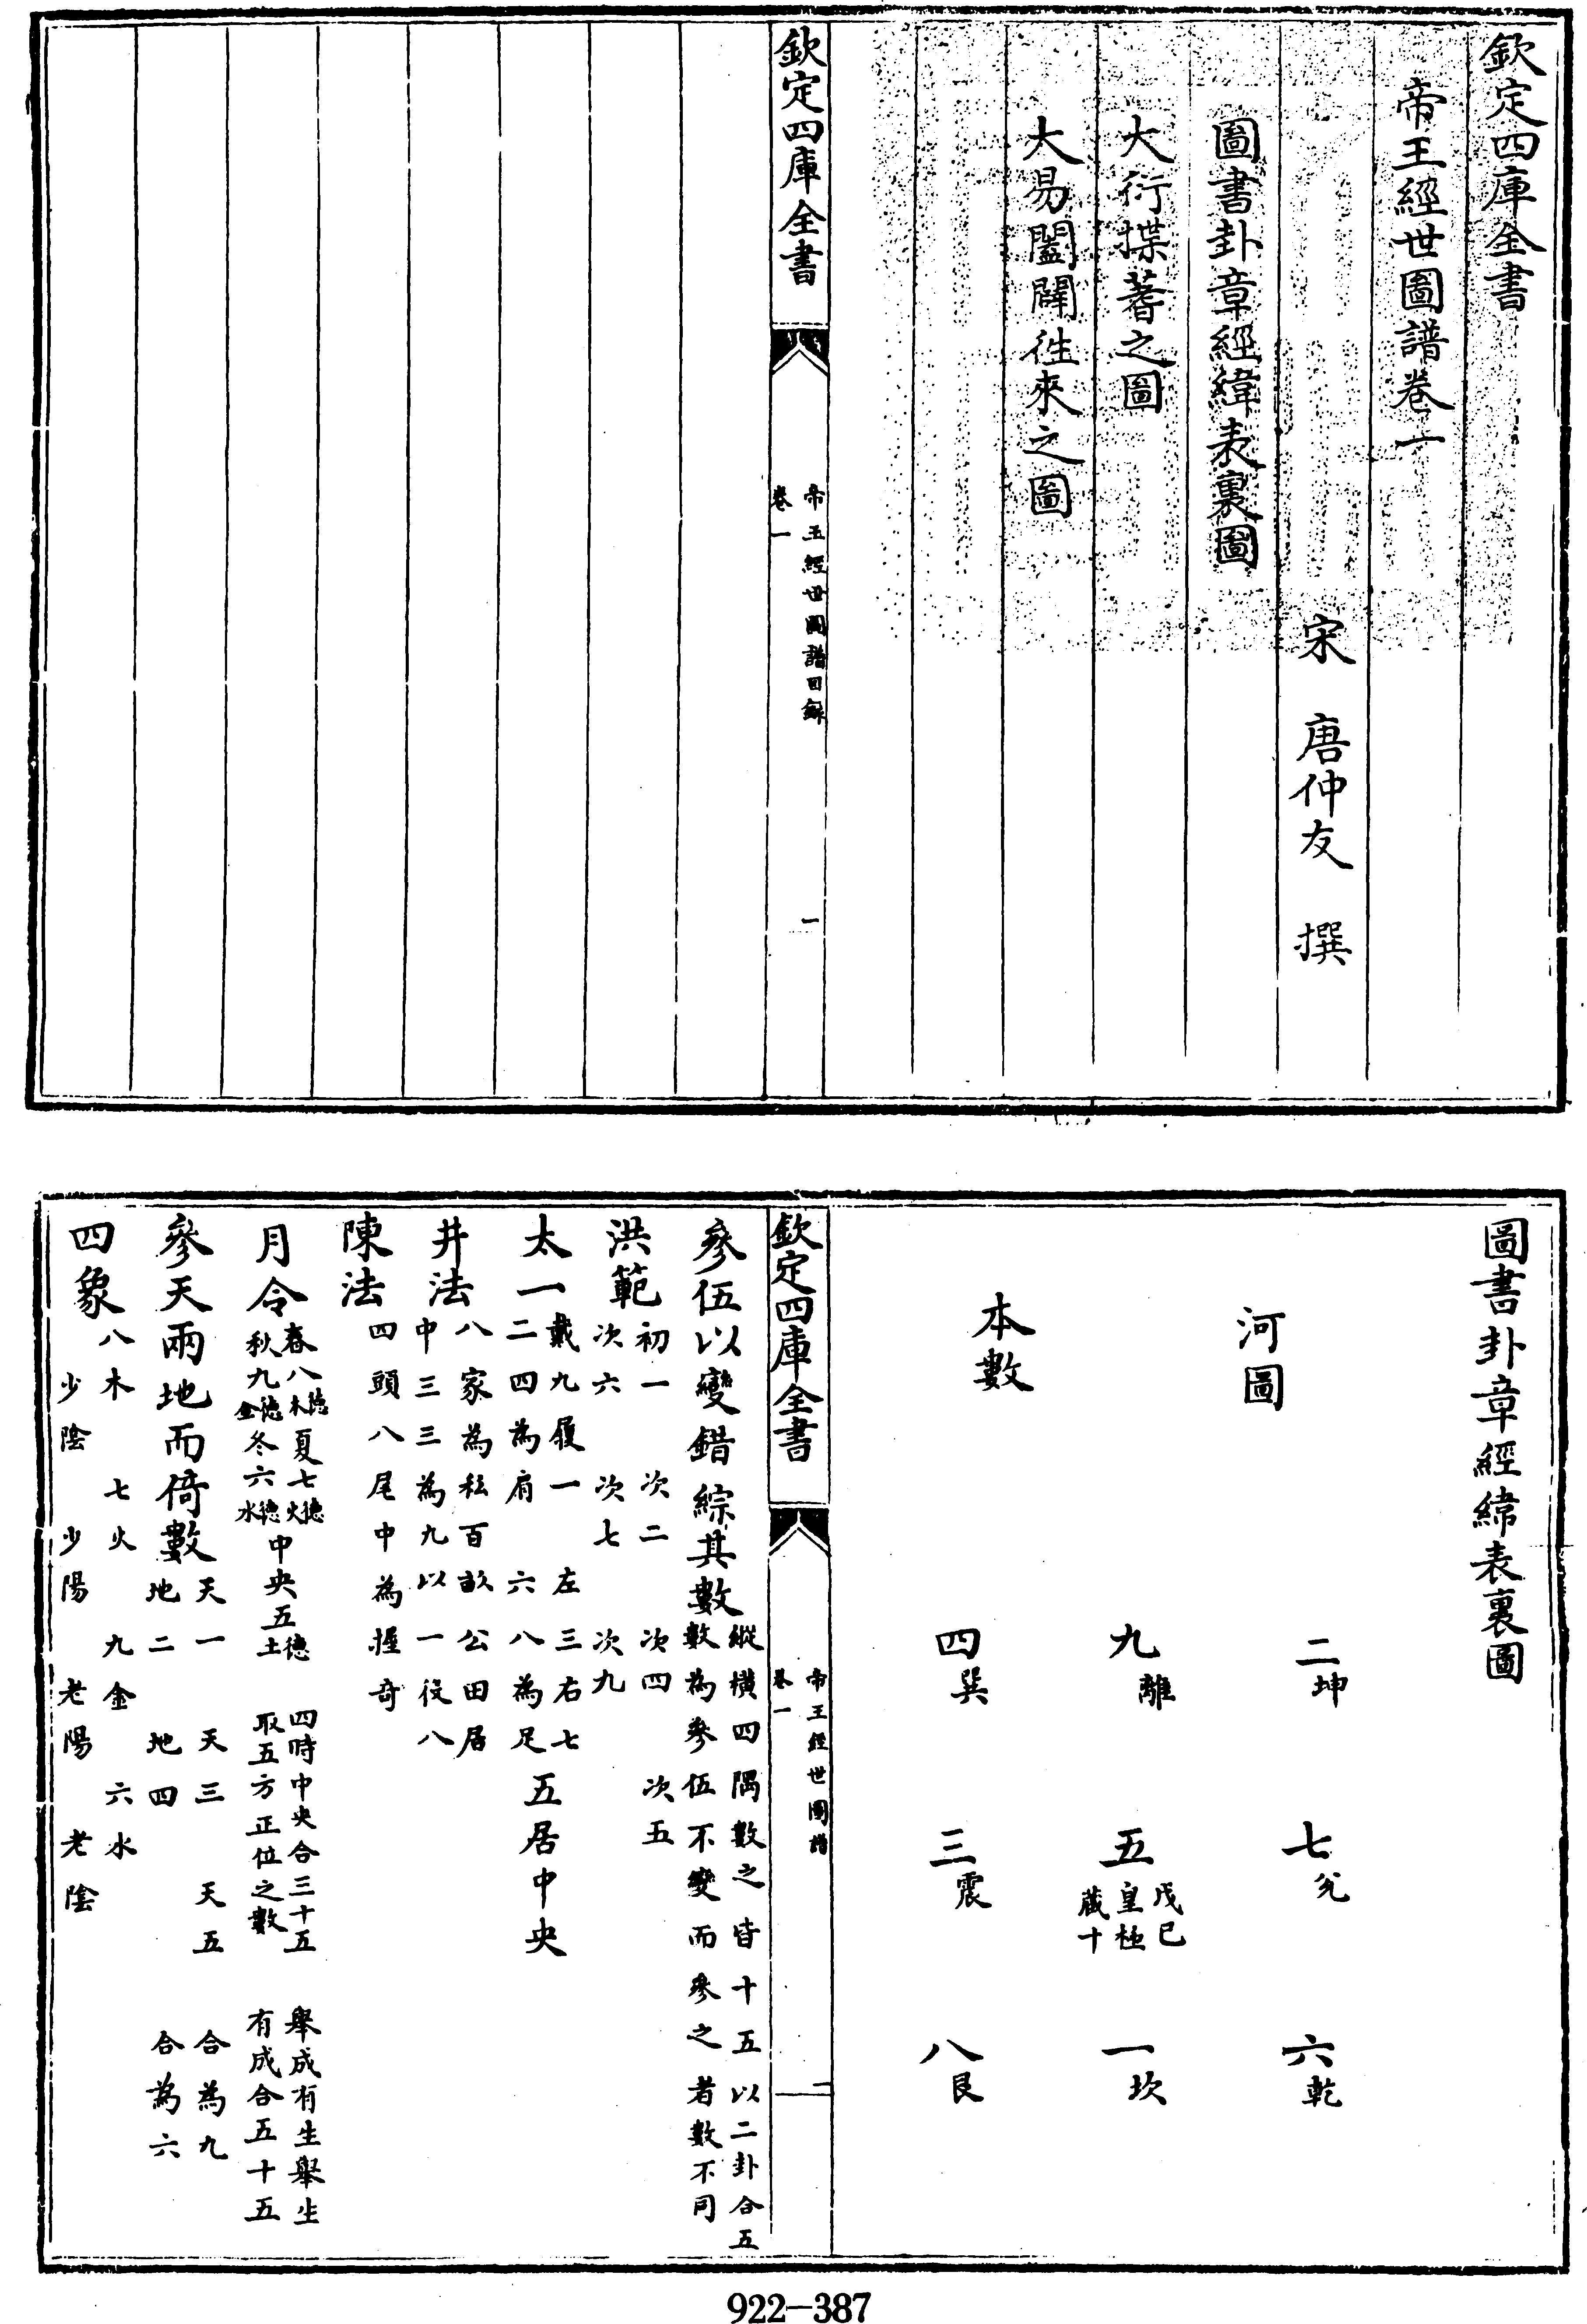 欽定四庫全書
帝王經世圖譜卷一
宋 唐仲友 撰
圖書卦章經緯表裏圖
大衍揲蓍之圖
大易闔闢往來之圖
欽定四庫全書
帝王經世圖譜目錄
卷一
一
圖書卦章經緯表裏圖
河圖
本數
二坤
七兌
六乾
九離
五
戊己
皇極
藏十
一坎
四巽
三震
八艮
欽定四庫全書
帝王經世圖譜
卷一
二
參伍以變錯綜其數
縱橫四隅數之皆十五以二卦合五
數為參伍不變而參之者數不同
洪範
初一 次二 次四 次五
次六 次七 次九
太一
戴九履一 左三右七
二四為肩 六八為足
五居中央
井法
八家為私百畝公田居
中三三為九以一役八
陳法
四頭八尾中為握奇
月令
春八木德夏七火德
秋九金德冬六水德
中央五土德
四時中央合三十五
取五方正位之數
舉成有生舉生
有成合五十五
參天兩地而倚數
天一 天三 天五 合為九
地二 地四 合為六
四象
八木 七火 九金 六水
少陰 少陽 老陽 老陰
922-387